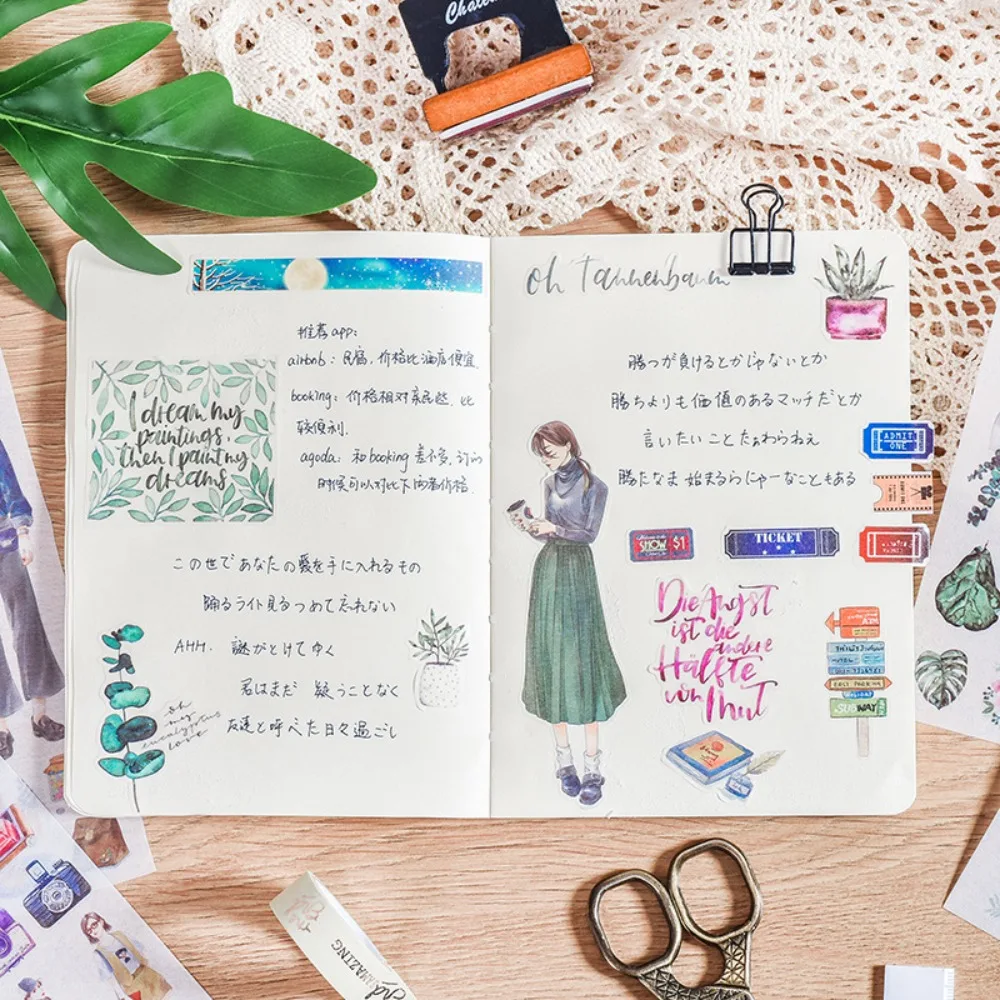 oh Tannenbaum
推荐app:
airbnb: 民宿,价格比酒店便宜.
booking: 价格相对亲民些,比
较便利.
agoda: 和booking差不多,订的
时候可以对比下两者价格.
I dream my
paintings,
then I paint my
dreams
この世であなたの愛を手に入れるもの
踊るライト見るつめて忘れない
AHH. 謎がとけてゆく
君はまだ 疑うことなく
友達と呼べた日々過ごし
oh
my
eucalyptus
love
勝つが負けるとかじゃないとか
勝ちよりも価値のあるマッチだとか
言いたいことたぁわらねぇ
勝たなま 始まるらにゃーなこともある
ADMIT
ONE
SHOW $1
TICKET
Die Angst
ist die
andere
Hälfte
von Mut
SUBWAY
AMAZING